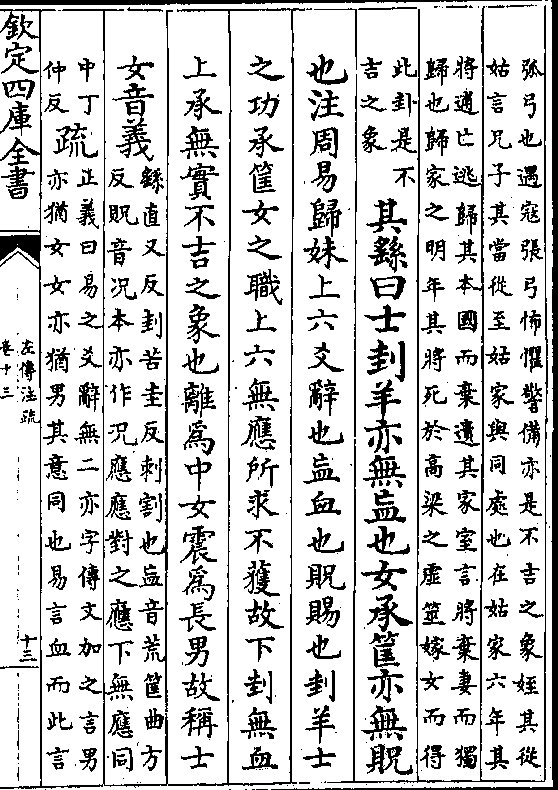 弧弓也遇寇張弓怖懼警備亦是不吉之象姪其從
姑言兄子其當從至姑家與同處也在姑家六年其
將逋亡逃歸其本國而棄遺其家室言將棄妻而獨
歸也歸家之明年其將死於高梁之虛筮嫁女而得
此卦是不
吉之象
其繇曰士刲羊亦無衁也女承筐亦無貺
也注周易歸妹上六爻辭也衁血也貺賜也刲羊士
之功承筐女之職上六無應所求不獲故下刲無血
上承無實不吉之象也離爲中女震爲長男故稱士
女音義
繇直又反刲苦圭反刺割也衁音荒筐曲方
反貺音況本亦作况應應對之應下無應同
中丁
仲反
疏
正義曰易之爻辭無二亦字傳文加之言男
亦猶女女亦猶男其意同也易言血而此言
欽定四庫全書
左傳注疏
卷十三
十三